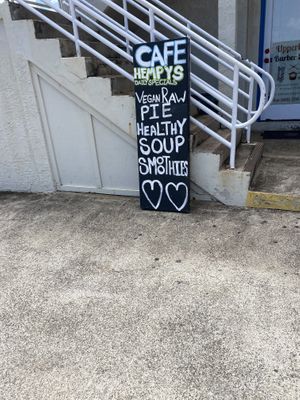 CAFE
HEMPYS
DAILY SPECIALS
VEGAN RAW
PIE
HEALTHY
SOUP
SMOTHIES
Upper
Barber